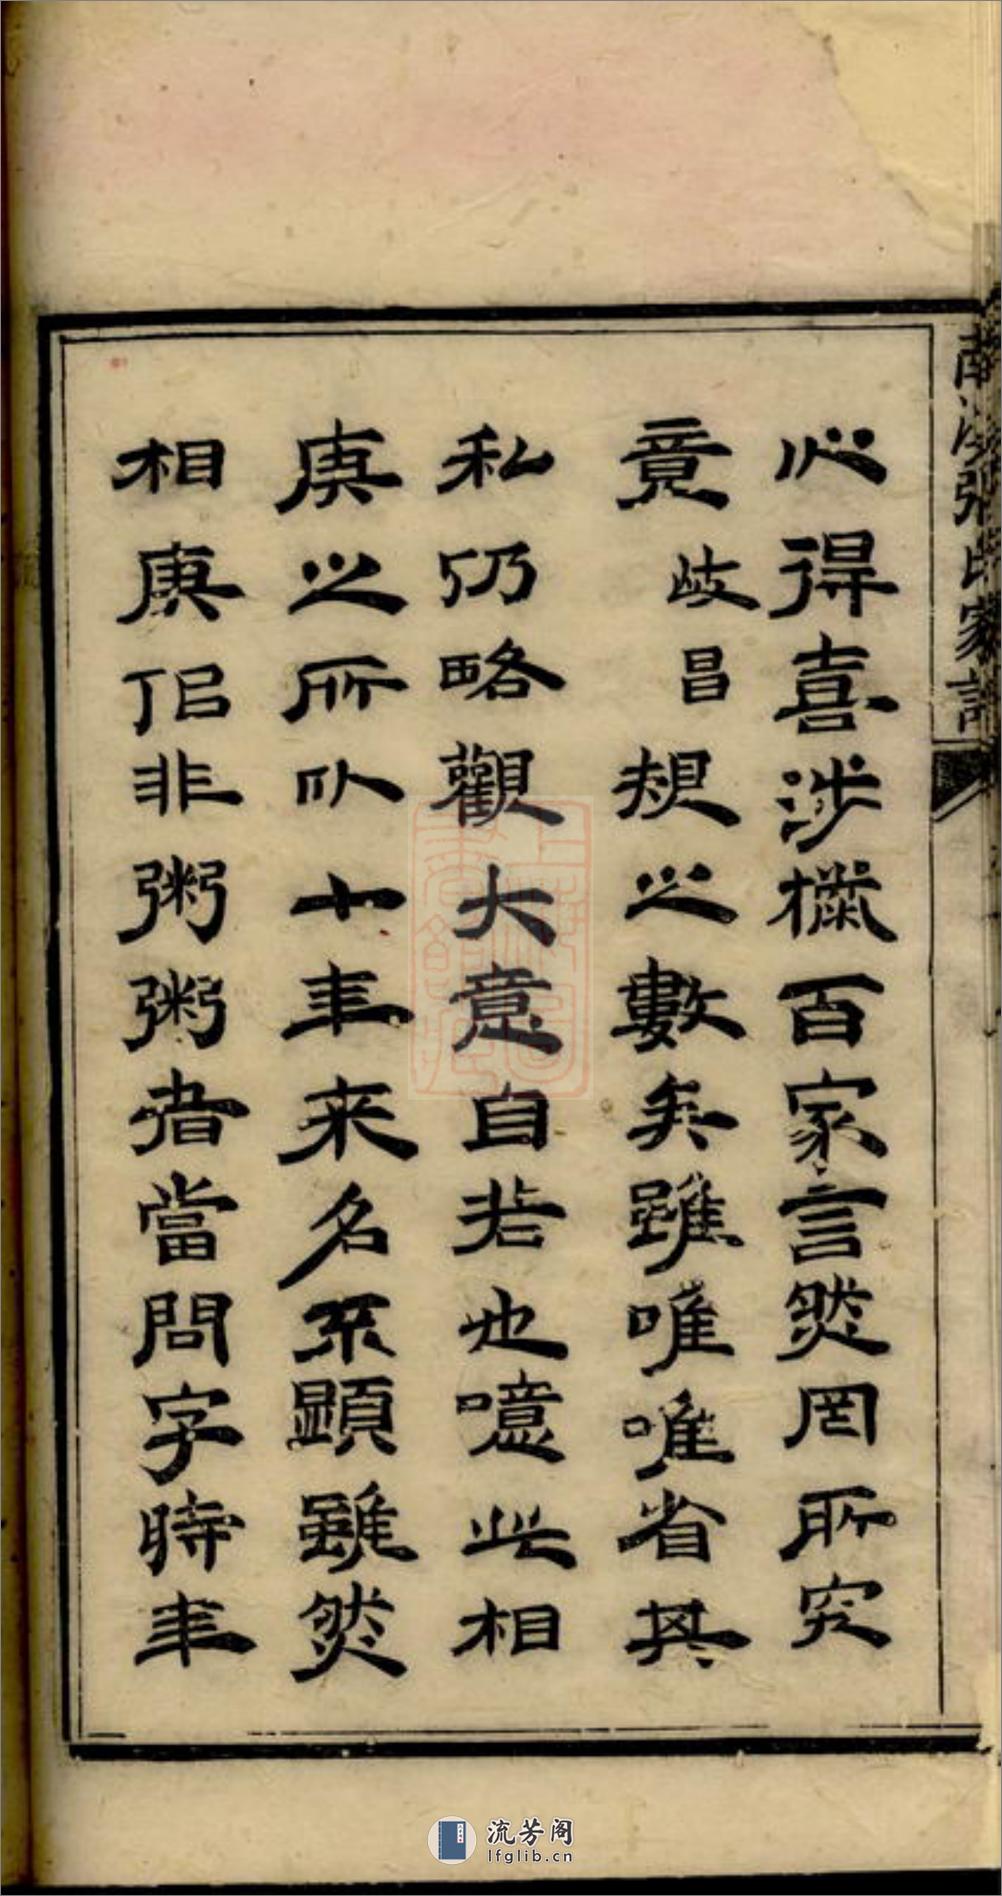 心得喜涉獵百家言然罔所究
竟岐昌規之數矣雖唯唯省其
私仍略觀大意自若也噫此相
庚之所以十年来名不顯雖然
相庚侣非粥粥者當問字時年
張氏家譜
流芳阁
lfglib.cn